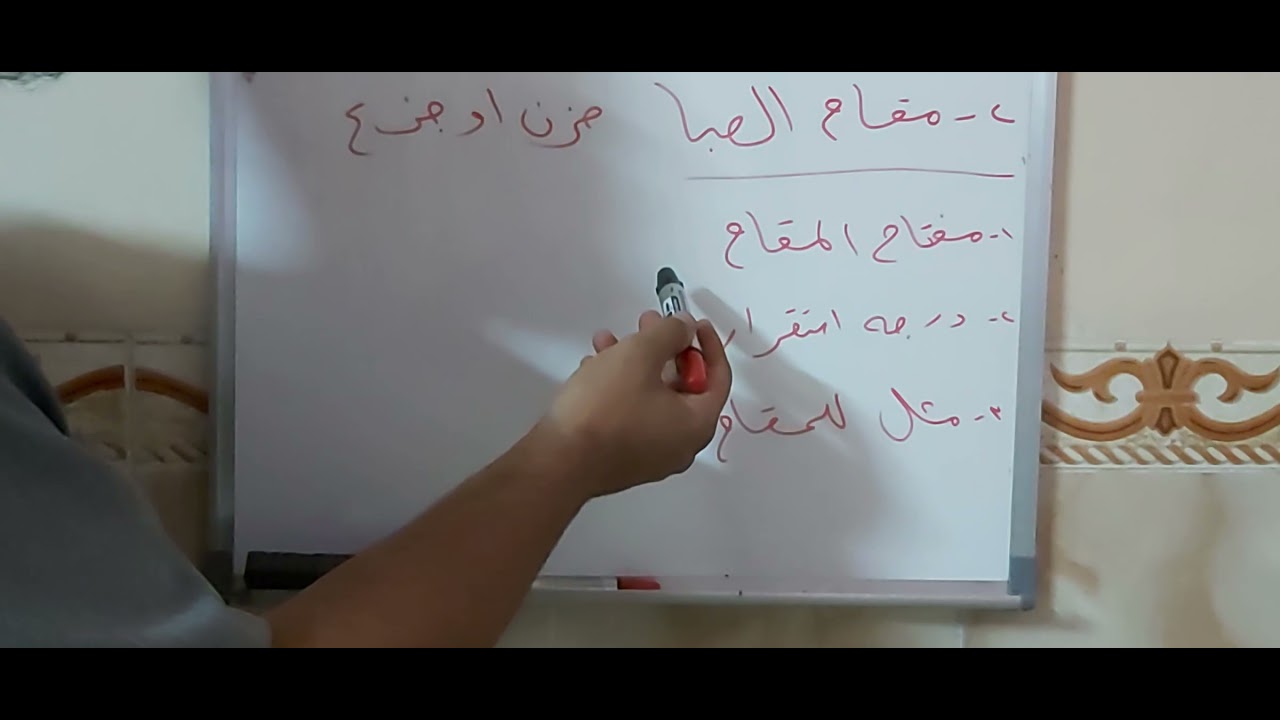 ٢- مقام الصبا حزن او جزع
١- مفتاح المقام
٢- درجه استقرار
٣- مثل للمقام